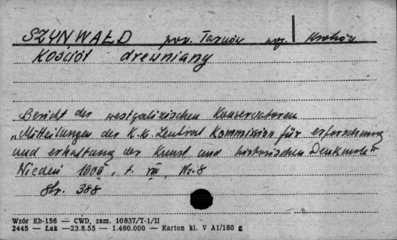 SZYNWAŁD pow. Tarnów woj. Kraków
Kościół drewniany
Bericht der westgalizischen Konservatoren
"Mitteilungen der K. K. Zentral Kommission für erforschung
und erhaltung der Kunst und historischen Denkmale"
Wiedeń t. VIII, Nr. 8
Str. 388
Wzór Kb-156 — CWD, zam. 10837/T-1/II
2445 — Łak —23.8.55 — 1.400.000 — Karton kl. V A1/180 g